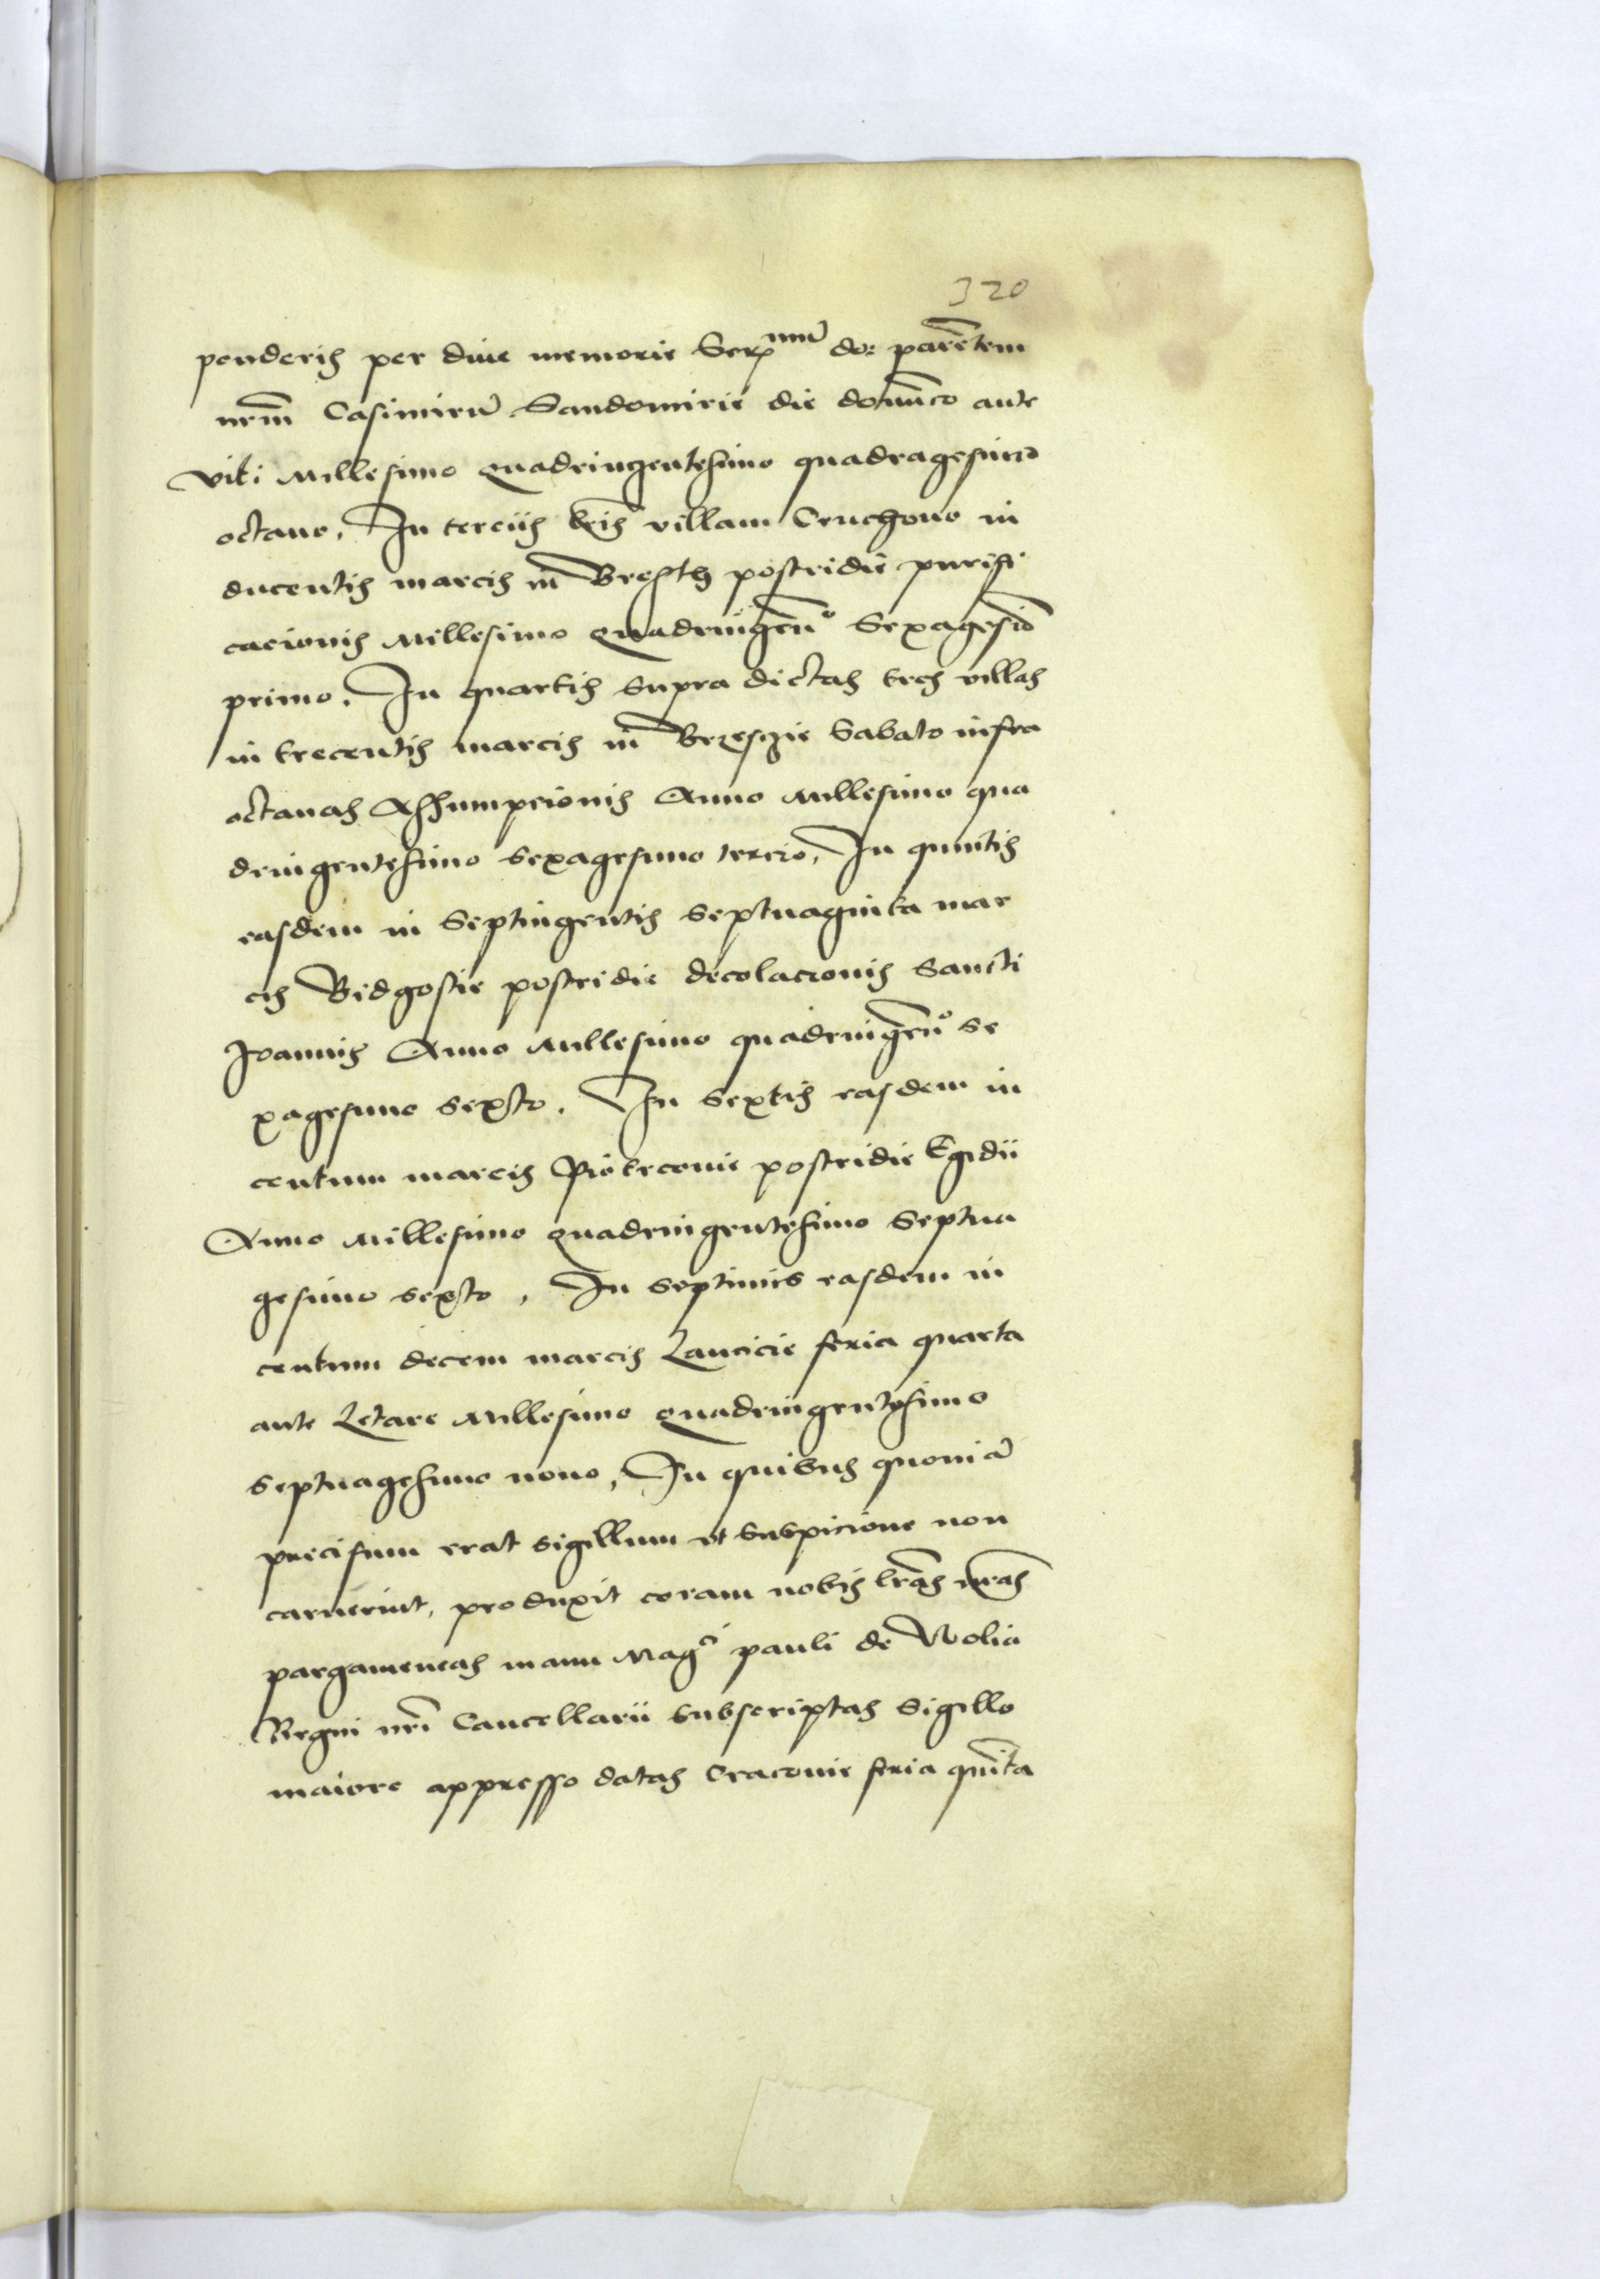 320
ponderis per dive memorie Serᵐᵘ̄ do: parēte̅m
nr̄m Casimirū Sandomirie die domīco ante
viti Millesimo quadringentesimo quadragesimo
octavo. In terciis lr̄is villam Cruchovo in
ducentis marcis in Bresth postridie purifi
cacionis Millesimo quadringen̄° Sexagesiō
primo. In quartis supra dictas tres villas
in trecentis marcis in Brzesczie Sabato infra
octavas Assumpcionis Anno Millesimo qua
dringentesimo sexagesimo tercio, In quintis
easdem in Septingentis septuaginta mar
cis Bidgostie postridie decolacionis Sancti
Joannis Anno Millesimo quadringen̄° se
xagesimo sexto. In sextis easdem in
centum marcis Piotrcovie postridie Egidii
Anno Millesimo quadringentesimo septua
gesimo sexto, In septimis easdem in
centum decem marcis Lancicie feria quarta
ante Letare Millesimo quadringentesimo
septuagesimo nono, In quibus quoniā
precisum erat sigillum et suspicione non
caruerint, produxit coram nobis lrās nrās
pargameneas manu Mag^ci pauli de Wolia
Regni nr̄i Cancellarii subscriptas sigillo
maiore appresso datas Cracovie feria qūita